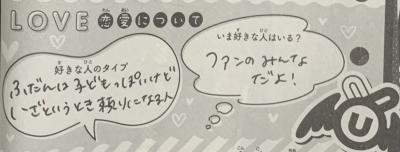 LOVE 恋愛について
好きな人のタイプ
ふだんは子どもっぽいけど
いざというとき頼りになる人
いま好きな人はいる？
ファンのみんな
だよ！
U